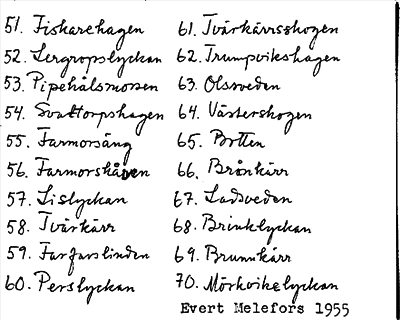 51. Fiskarehagen
52. Lergropslyckan
53. Pipehålsmossen
54. Svaltorpshagen
55. Farmorsäng
56. Farmorskåven
57. Lislyckan
58. Tvärkärr
59. Farfarslinden
60. Perslyckan
61. Tvärkärrsskogen
62. Trumpvikshagen
63. Olssveden
64. Västerskogen
65. Botten
66. Brånkärr
67. Ladsveden
68. Brinklyckan
69. Brunnkärr
70. Mörkvikelyckan
Evert Melefors 1955